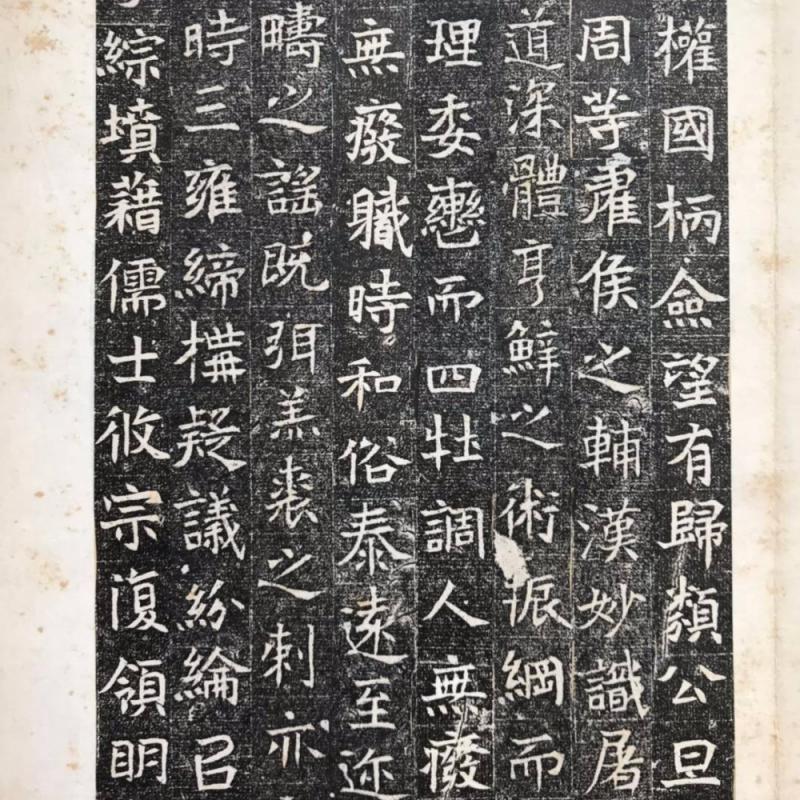 權國柄僉望有歸類公旦
周䓁霍侯之輔漢妙識屠
道深體亨鮮之術振綱而
理委轡而四牡調人無癈
無癈職時和俗泰遠至迩
疇之謡既弭羔裘之刺亦
時三雍締構疑議紛綸召
綜墳藉儒士攸宗復領明